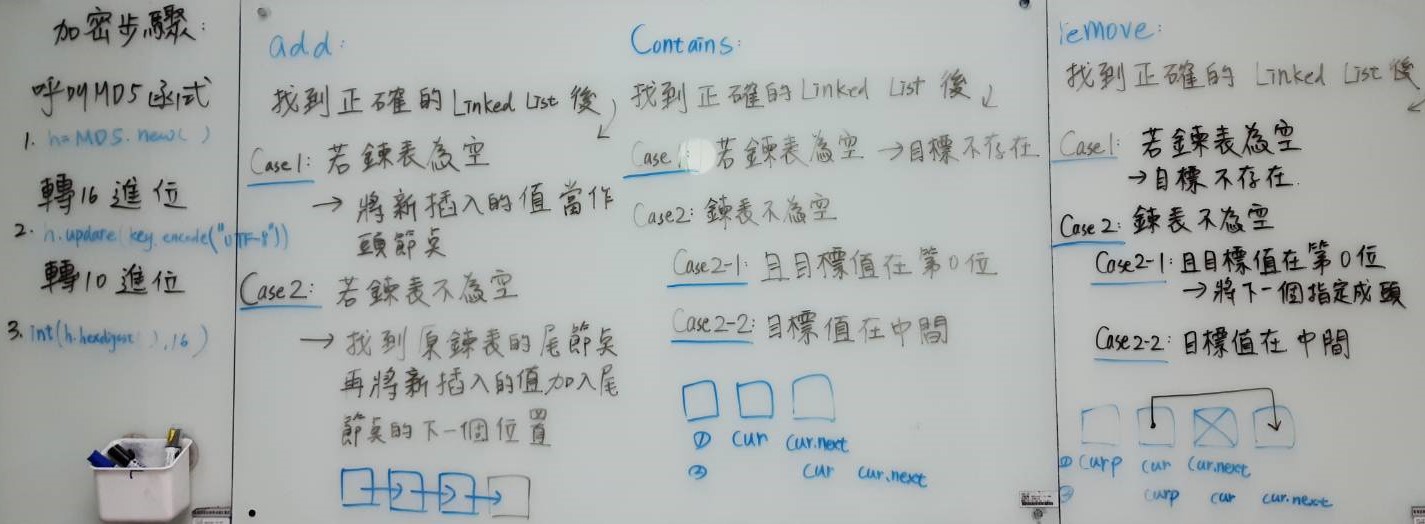 加密步驟:
呼叫MD5函式
1. h=MD5.new( )
轉16進位
2. h.update(key.encode("UTF-8"))
轉10進位
3. int(h.hexdigest( ),16)
add:
找到正確的Linked List後,
Case1: 若鍊表為空
→ 將新插入的值當作
頭節点
Case2: 若鍊表不為空
→ 找到原鍊表的尾節点
再將新插入的值加入尾
節点的下一個位置
Contains:
找到正確的Linked List後,
Case1: 若鍊表為空 →目標不存在
Case2: 鍊表不為空
Case2-1: 且目標值在第0位
Case2-2: 目標值在中間
① cur cur.next
② cur cur.next
remove:
找到正確的Linked List後
Case1: 若鍊表為空
→目標不存在.
Case2: 鍊表不為空
Case2-1: 且目標值在第0位
→將下一個指定成頭
Case2-2: 目標值在中間
① curp cur cur.next
② curp cur cur.next